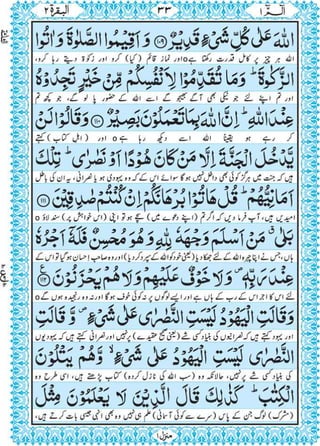 البقرة ٢
٣٣
الٓمّٓ ١
اللّٰهَ عَلٰى كُلِّ شَیْءٍ قَدِیْرٌ ۝۱۰۹ وَ اَقِیْمُوا الصَّلٰوةَ وَ اٰتُوا
اللہ ہر چیز پر کامل قدرت رکھتا ہے o اور نماز قائم (کیا) کرو اور زکوٰۃ دیتے رہا کرو،
الزَّكٰوةَ ؕ وَ مَا تُقَدِّمُوْا لِاَنْفُسِكُمْ مِّنْ خَیْرٍ تَجِدُوْهُ
اور تم اپنے لئے جو نیکی بھی آگے بھیجو گے اسے اللہ کے حضور پا لو گے، جو کچھ تم
عِنْدَ اللّٰهِ ؕ اِنَّ اللّٰهَ بِمَا تَعْمَلُوْنَ بَصِیْرٌ ۝۱۱۰ وَ قَالُوْا لَنْ
کر رہے ہو یقیناً اللہ اسے دیکھ رہا ہے o اور (اہل کتاب) کہتے
یَّدْخُلَ الْجَنَّةَ اِلَّا مَنْ كَانَ هُوْدًا اَوْ نَصٰرٰى ؕ تِلْكَ
ہیں کہ جنت میں ہرگز کوئی بھی داخل نہیں ہوگا سوائے اس کے کہ وہ یہودی ہو یا نصرانی، یہ ان کی باطل
اَمَانِیُّهُمْ ؕ قُلْ هَاتُوْا بُرْهَانَكُمْ اِنْ كُنْتُمْ صٰدِقِیْنَ ۝۱۱۱
امیدیں ہیں، آپ فرما دیں کہ اگر تم (اپنے دعوے میں) سچے ہو تو اپنی (اس خواہش پر) سند لاؤ o
بَلٰى ۗ مَنْ اَسْلَمَ وَجْهَهٗ لِلّٰهِ وَ هُوَ مُحْسِنٌ فَلَهٗۤ اَجْرُهٗ
ہاں، جس نے اپنا چہرہ اللہ کے لئے جھکا دیا (یعنی خود کو اللہ کے سپرد کر دیا) اور وہ صاحبِ احسان ہو گیا تو اس کے
عِنْدَ رَبِّهٖ ۪ وَ لَا خَوْفٌ عَلَیْهِمْ وَ لَا هُمْ یَحْزَنُوْنَ ۝۱۱۲
لئے اس کا اجر اس کے رب کے ہاں ہے اور ایسے لوگوں پر نہ کوئی خوف ہوگا اور نہ وہ رنجیدہ ہوں گے o
وَ قَالَتِ الْیَهُوْدُ لَیْسَتِ النَّصٰرٰى عَلٰى شَیْءٍ ۪ وَّ قَالَتِ
اور یہود کہتے ہیں کہ نصرانیوں کی بنیاد کسی شے (یعنی صحیح عقیدے) پر نہیں اور نصرانی کہتے ہیں کہ یہودیوں
النَّصٰرٰى لَیْسَتِ الْیَهُوْدُ عَلٰى شَیْءٍ ۙ وَّ هُمْ یَتْلُوْنَ
کی بنیاد کسی شے پر نہیں، حالانکہ وہ (سب اللہ کی نازل کردہ) کتاب پڑھتے ہیں، اسی طرح وہ
الْكِتٰبَ ؕ كَذٰلِكَ قَالَ الَّذِیْنَ لَا یَعْلَمُوْنَ مِثْلَ
(مشرک) لوگ جن کے پاس (سرے سے کوئی آسمانی) علم ہی نہیں وہ بھی انہی جیسی بات کرتے ہیں،
منزل ١